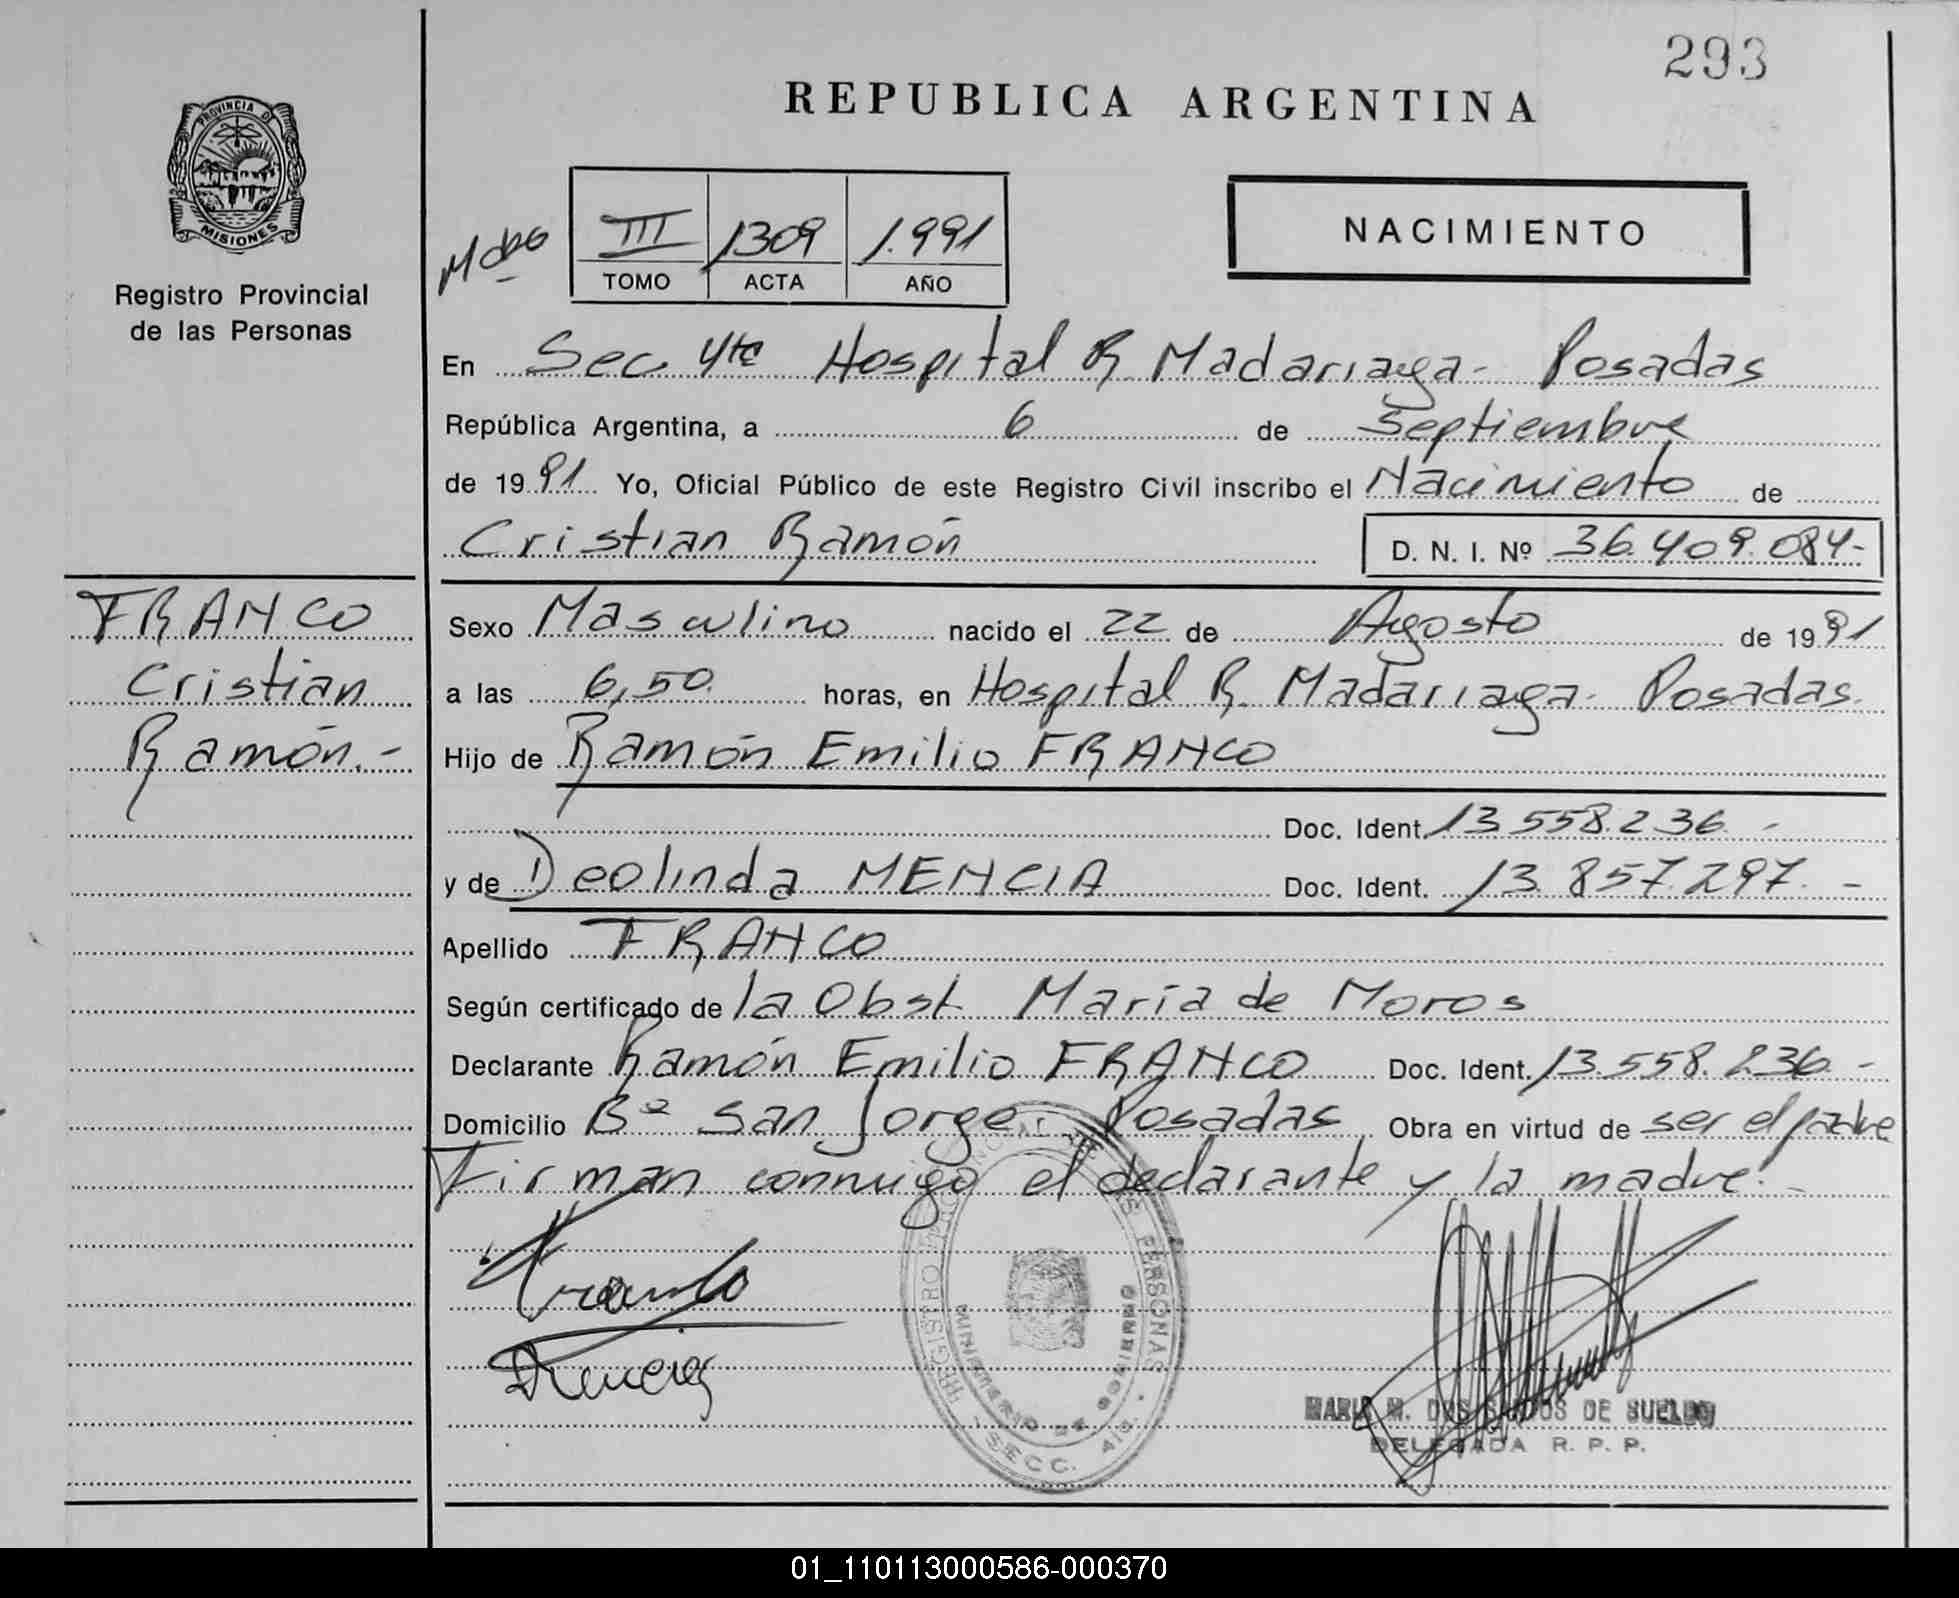 293
REPUBLICA ARGENTINA
PROVINCIA DE
MISIONES
Registro Provincial
de las Personas
III 1309 1.991
TOMO ACTA AÑO
NACIMIENTO
En Sec. 4ta Hospital R. Madariaga - Posadas
República Argentina, a 6 de Septiembre
de 1991 Yo, Oficial Público de este Registro Civil inscribo el Nacimiento de
Cristian Ramón D. N. I. Nº 36.409.084-
FRANCO
Cristian
Ramón.-
Sexo Masculino nacido el 22 de Agosto de 1991
a las 6,50 horas, en Hospital R. Madariaga - Posadas.
Hijo de Ramón Emilio FRANCO
Doc. Ident. 13.558.236.-
y de Deolinda MENCIA Doc. Ident. 13.857.297.-
Apellido FRANCO
Según certificado de la Obst. María de Moros
Declarante Ramón Emilio FRANCO Doc. Ident. 13.558.236.-
Domicilio Bº San Jorge. Posadas Obra en virtud de ser el padre
Firman conmigo el declarante y la madre.-
REGISTRO PROVINCIAL DE LAS PERSONAS
MINISTERIO DE GOBIERNO
SECC. 4ta.
MARIA M. DOS SANTOS DE SUELDO
DELEGADA R. P. P.
01_110113000586-000370